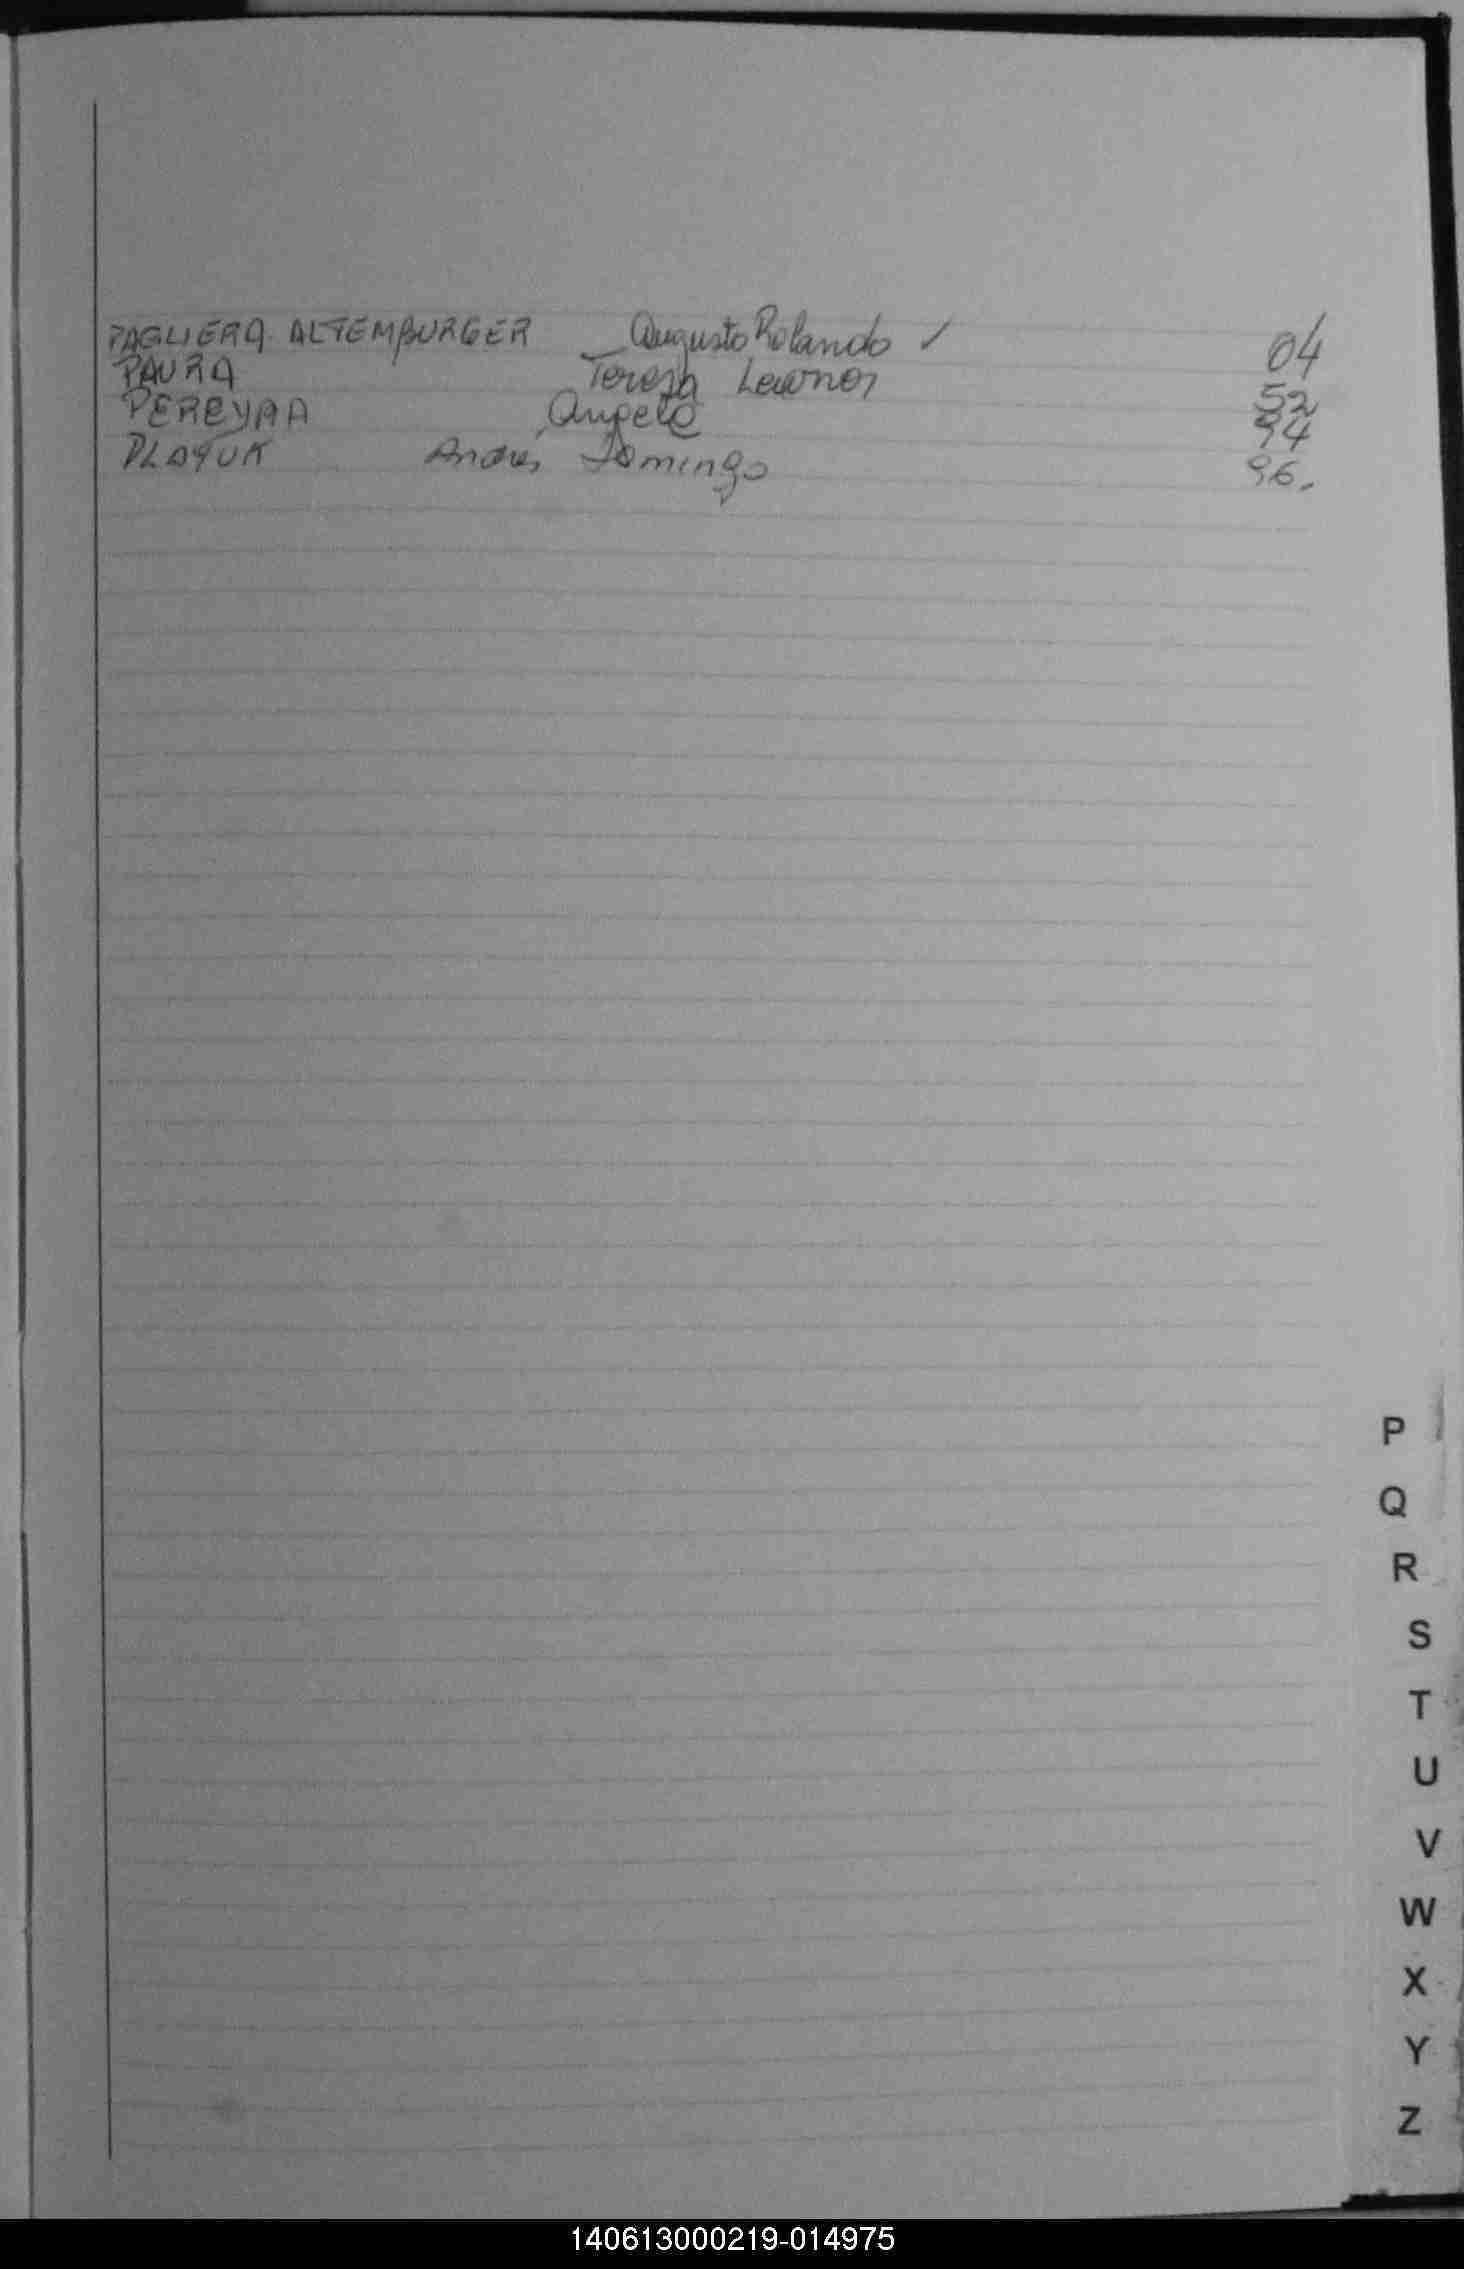 PAGLIERA ALTEMBURGER Augusto Rolando ✓ 04
PAURA Teresa 52
PEREYRA Angela 94
Andrés Domingo 96.
P
Q
R
S
T
U
V
W
X
Y
Z
140613000219-014975